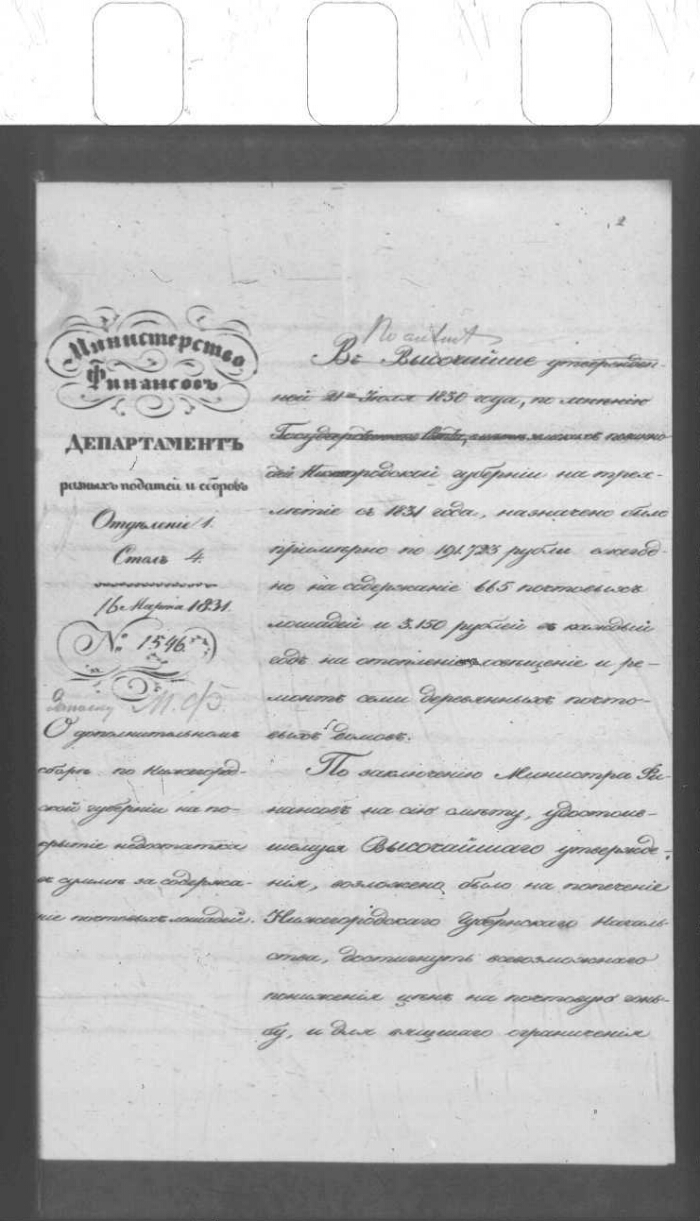 2
Министерство
Финансовъ
ДЕПАРТАМЕНТЪ
разныхъ податей и сборовъ
Отдѣленіе 1.
Столъ 4.
16 Марта 1831.
№ 1546
О дополнительномъ
сборѣ по Нижегород-
ской губерніи на по-
крытіе недостатка
въ суммѣ за содержа-
ніе почтовыхъ лошадей.
Въ Высочайше утвержден-
ной 21го Іюля 1830 года, по мнѣнію
Государственнаго Совѣта,
родской губерніи на трех-
лѣтіе съ 1831 года, назначено было
примѣрно по 191.723 рубли ежегод-
но на содержаніе 665 почтовыхъ
лошадей и 3.150 рублей въ каждый
годъ на отопленіе, освѣщеніе и ре-
монтъ семи деревянныхъ почто-
выхъ домовъ.
По заключенію Министра Фи-
нансовъ на сію смѣту, удостоив-
шемуся Высочайшаго утвержде-
нія, возложено было на попеченіе
Нижегородскаго Губернскаго Началь-
ства, достигнуть всевозможнаго
пониженія цѣнъ на почтовую гонь-
бу, и для вящшаго ограниченія